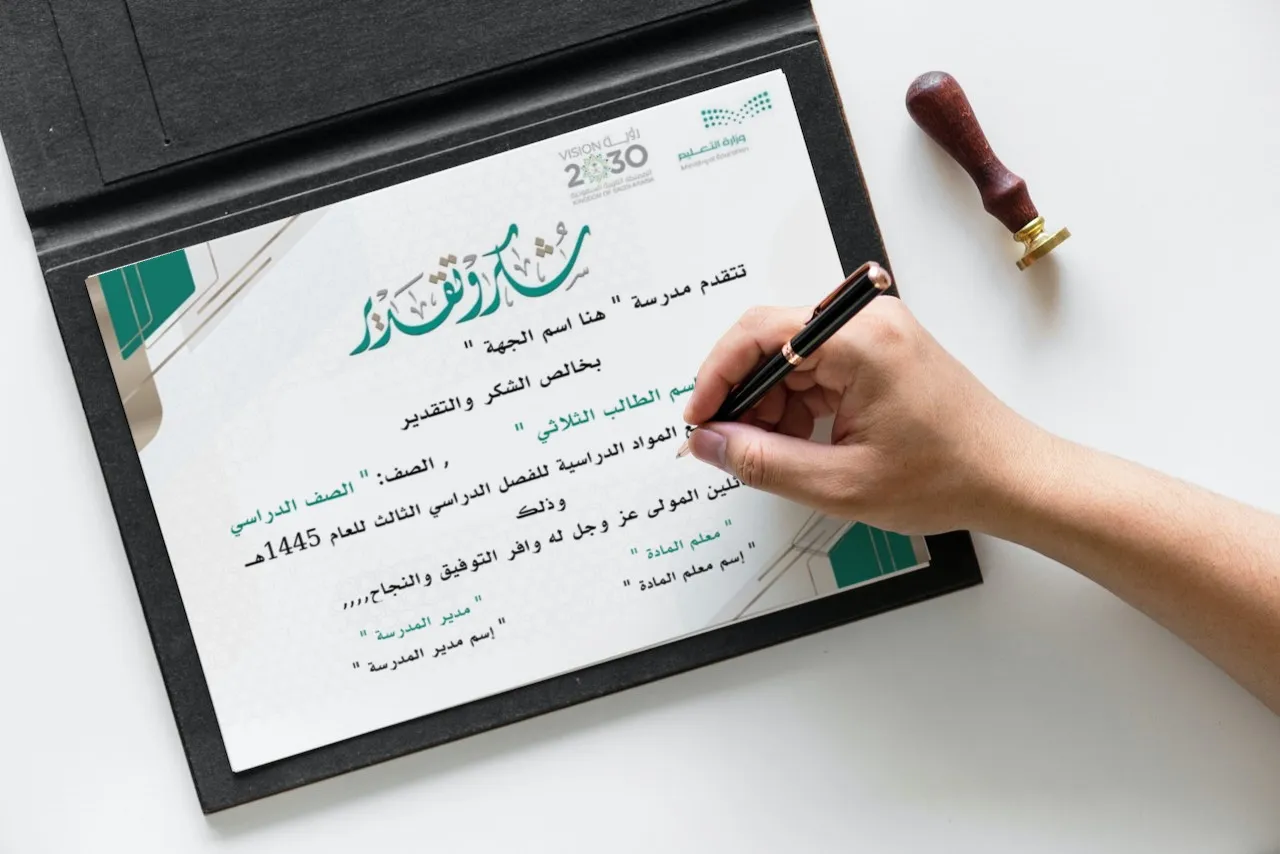 رؤيــة VISION
2030
المملكة العربية السعودية
KINGDOM OF SAUDI ARABIA
وزارة التعليم
Ministry of Education
شكر وتقدير
تتقدم مدرسة " هنا اسم الجهة "
بخالص الشكر والتقدير
اسم الطالب الثلاثي "
, الصف: " الصف الدراسي
المواد الدراسية للفصل الدراسي الثالث للعام 1445هـ
وذلك
المولى عز وجل له وافر التوفيق والنجاح,,,,
" معلم المادة "
" إسم معلم المادة "
" مدير المدرسة "
" إسم مدير المدرسة "